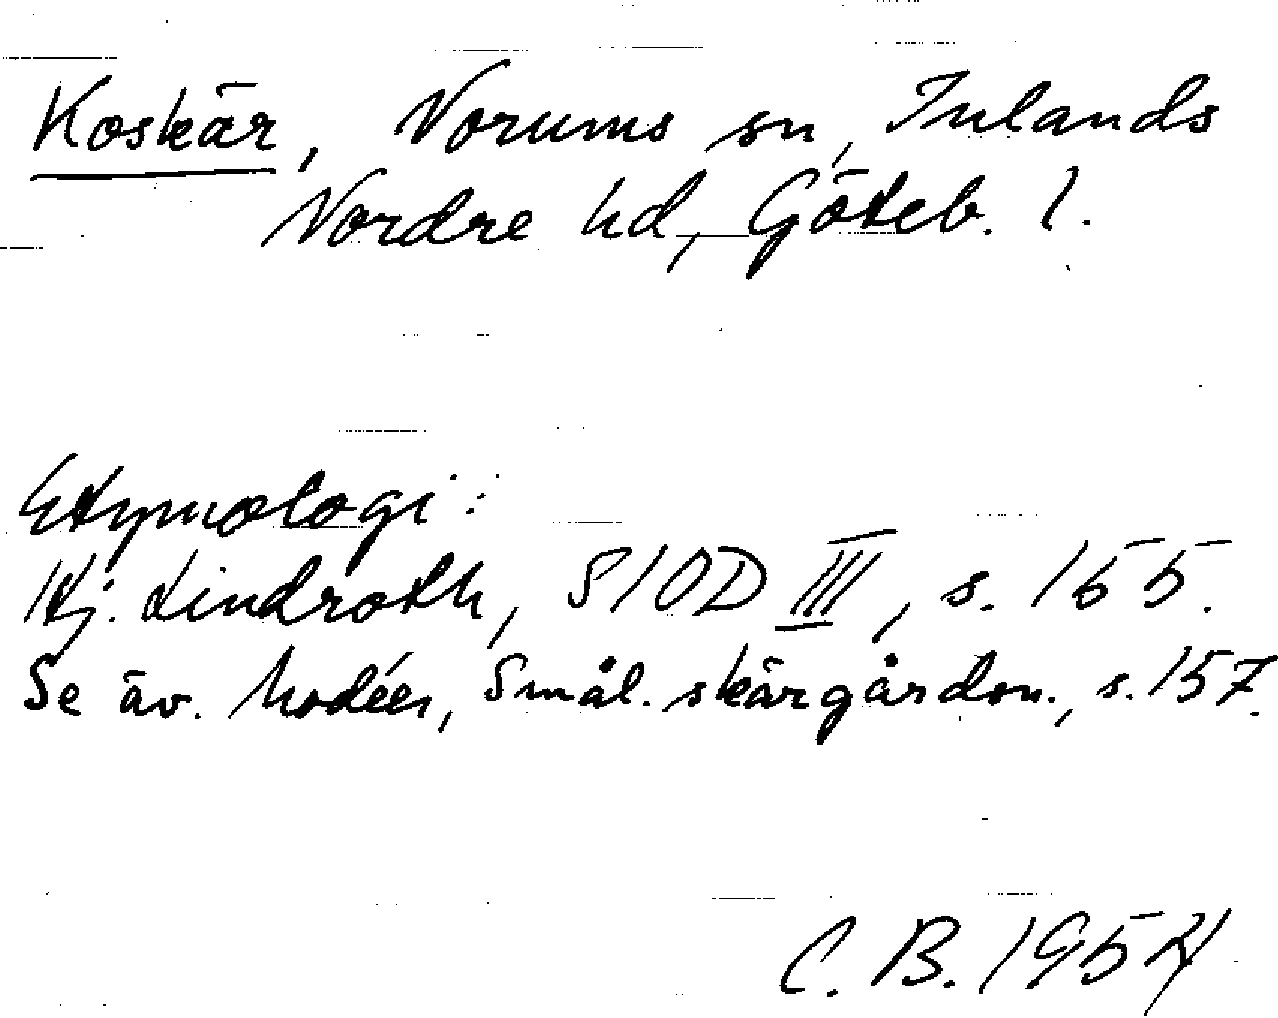 Koskär, Norums sn, Inlands
Nordre hd, Göteb. l.
Etymologi:
Hj. Lindroth, SIOD III, s. 155.
Se äv. Modéer, Smål. skärgårdsn., s. 157.
C. B. 1954